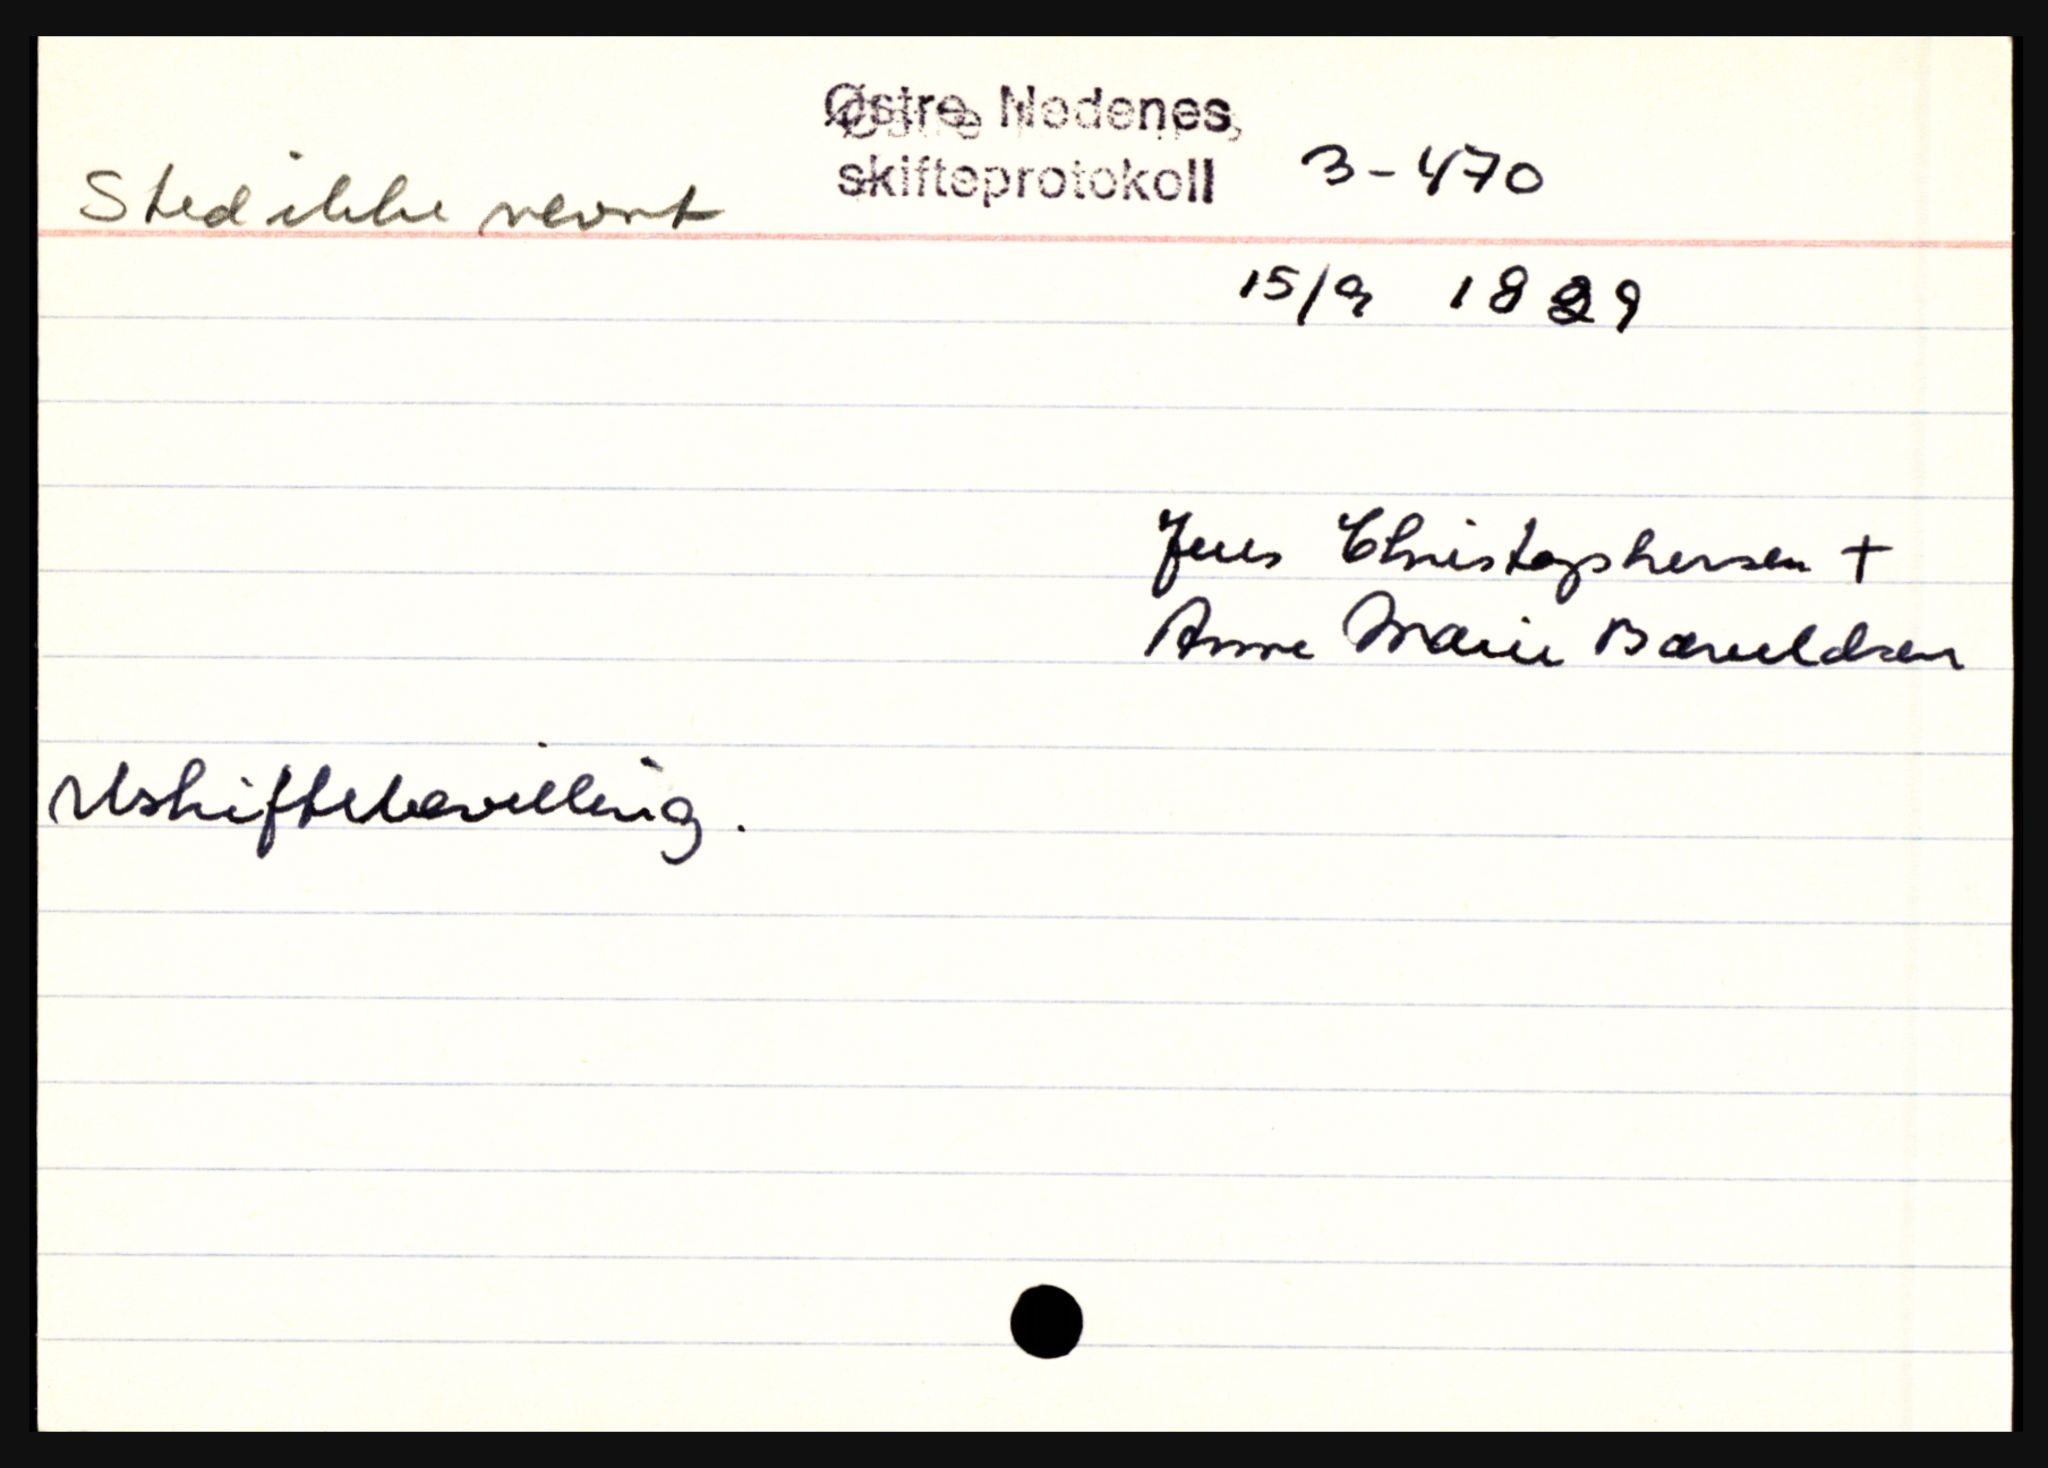 Østre Nedenes,
skifteprotokoll 3-470
Sted ikke nevnt
15/9 1829
Jens Christophersen +
Anne Marie Barveldsen
Uskiftebevilling.